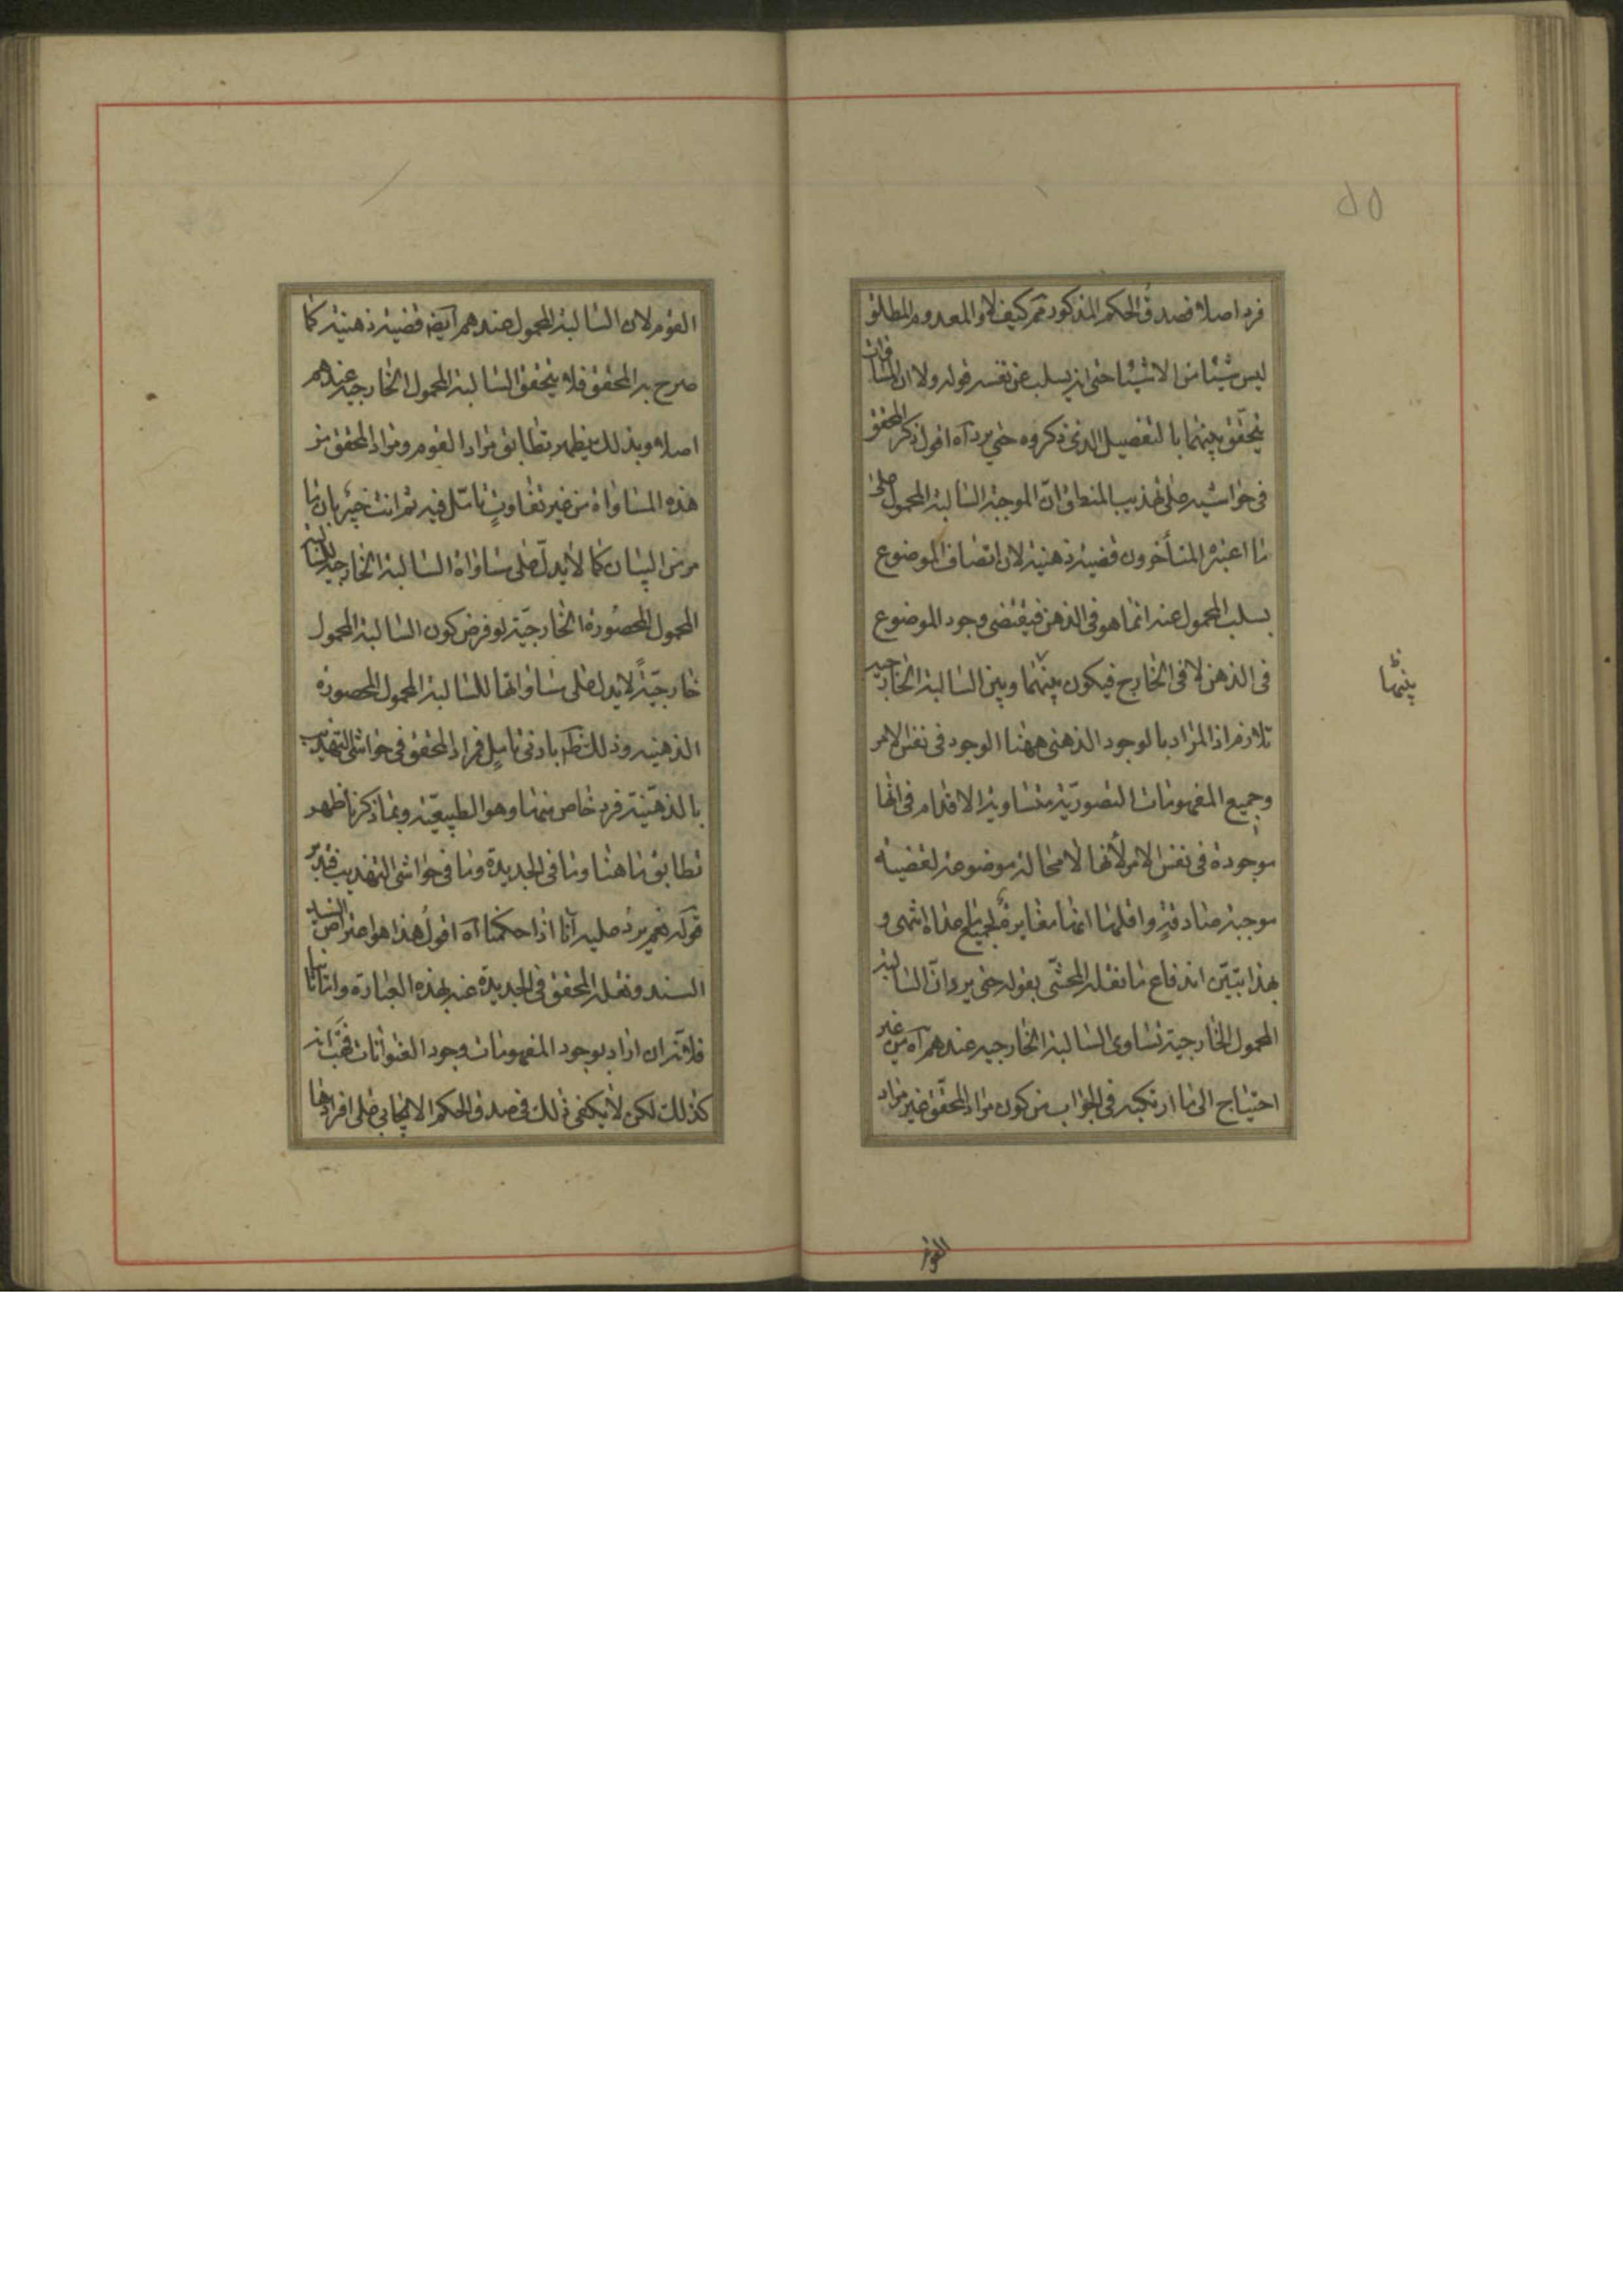 فرد اصلا فصدق الحكم المذكور ثم كيف لا والمعدوم المطلق
ليس شيئا من الاشياء حتى انه يسلب عن نفسه قوله ولا ان المساوات
يتحقق بينهما بالتفصيل الذى ذكروه حتى يرد آه اقول ذكر المحقق
فى حواشيه على تهذيب المنطق ان الموجبة السالبة المحمول على
ما اعتبره المتأخرون قضية ذهنية لان اتصاف الموضوع
بسلب المحمول عنه انما هو فى الذهن فيقتضى وجود الموضوع
فى الذهن لا فى الخارج فيكون بينهما وبين السالبة الخارجية
بينها
تلازم اذ المراد بالوجود الذهنى ههنا الوجود فى نفس الامر
وجميع المفهومات التصورية متساوية الاقدام فى انها
موجودة فى نفس الامر لانها لا محالة موضوعة لقضية
موجبة صادقة واقلها انها مغايرة لجميع ما عداه انتهى و
بهذا تبين اندفاع ما نقله المحشى بقوله حتى يرد ان السالبة
المحمول الخارجية تساوى السالبة الخارجية عندهم آه من غير
احتياج الى ما ارتكبه فى الجواب من كون مراد المحقق غير مراد
القوم
القوم لان السالبة المحمول عندهم ايضا قضية ذهنية كما
صرح به المحقق فلا يتحقق السالبة المحمول الخارجية عندهم
اصلا وبذلك يظهر تطابق مراد القوم ومراد المحقق من
هذه المساواة من غير تفاوت تأمل فيه ثم انت خبير بان ما
مر من البيان كما لا يدل على مساواة السالبة الخارجية للسالبة
المحمول المحصورة الخارجية لو فرض كون السالبة المحمول
خارجية لا يدل على مساواتها للسالبة المحمول المحصورة
الذهنية وذلك ظ بادنى تأمل فمراد المحقق فى حواشى التهذيب
بالذهنية فرد خاص منها وهو الطبيعية وبما ذكرنا ظهر
تطابق ما هنا وما فى الجديدة وما فى حواشى التهذيب فتدبر
قوله نعم يرد عليه انا اذا حكمنا آه اقول هذا هو اعتراض السيد
السند ونقله المحقق فى الجديدة عنه بهذه العبارة واما ثانيا
فلانه ان اراد بوجود المفهومات وجود العنوانات فهب انه
كذلك لكن لا يكفى ذلك فى صدق الحكم الايجابى على افرادها